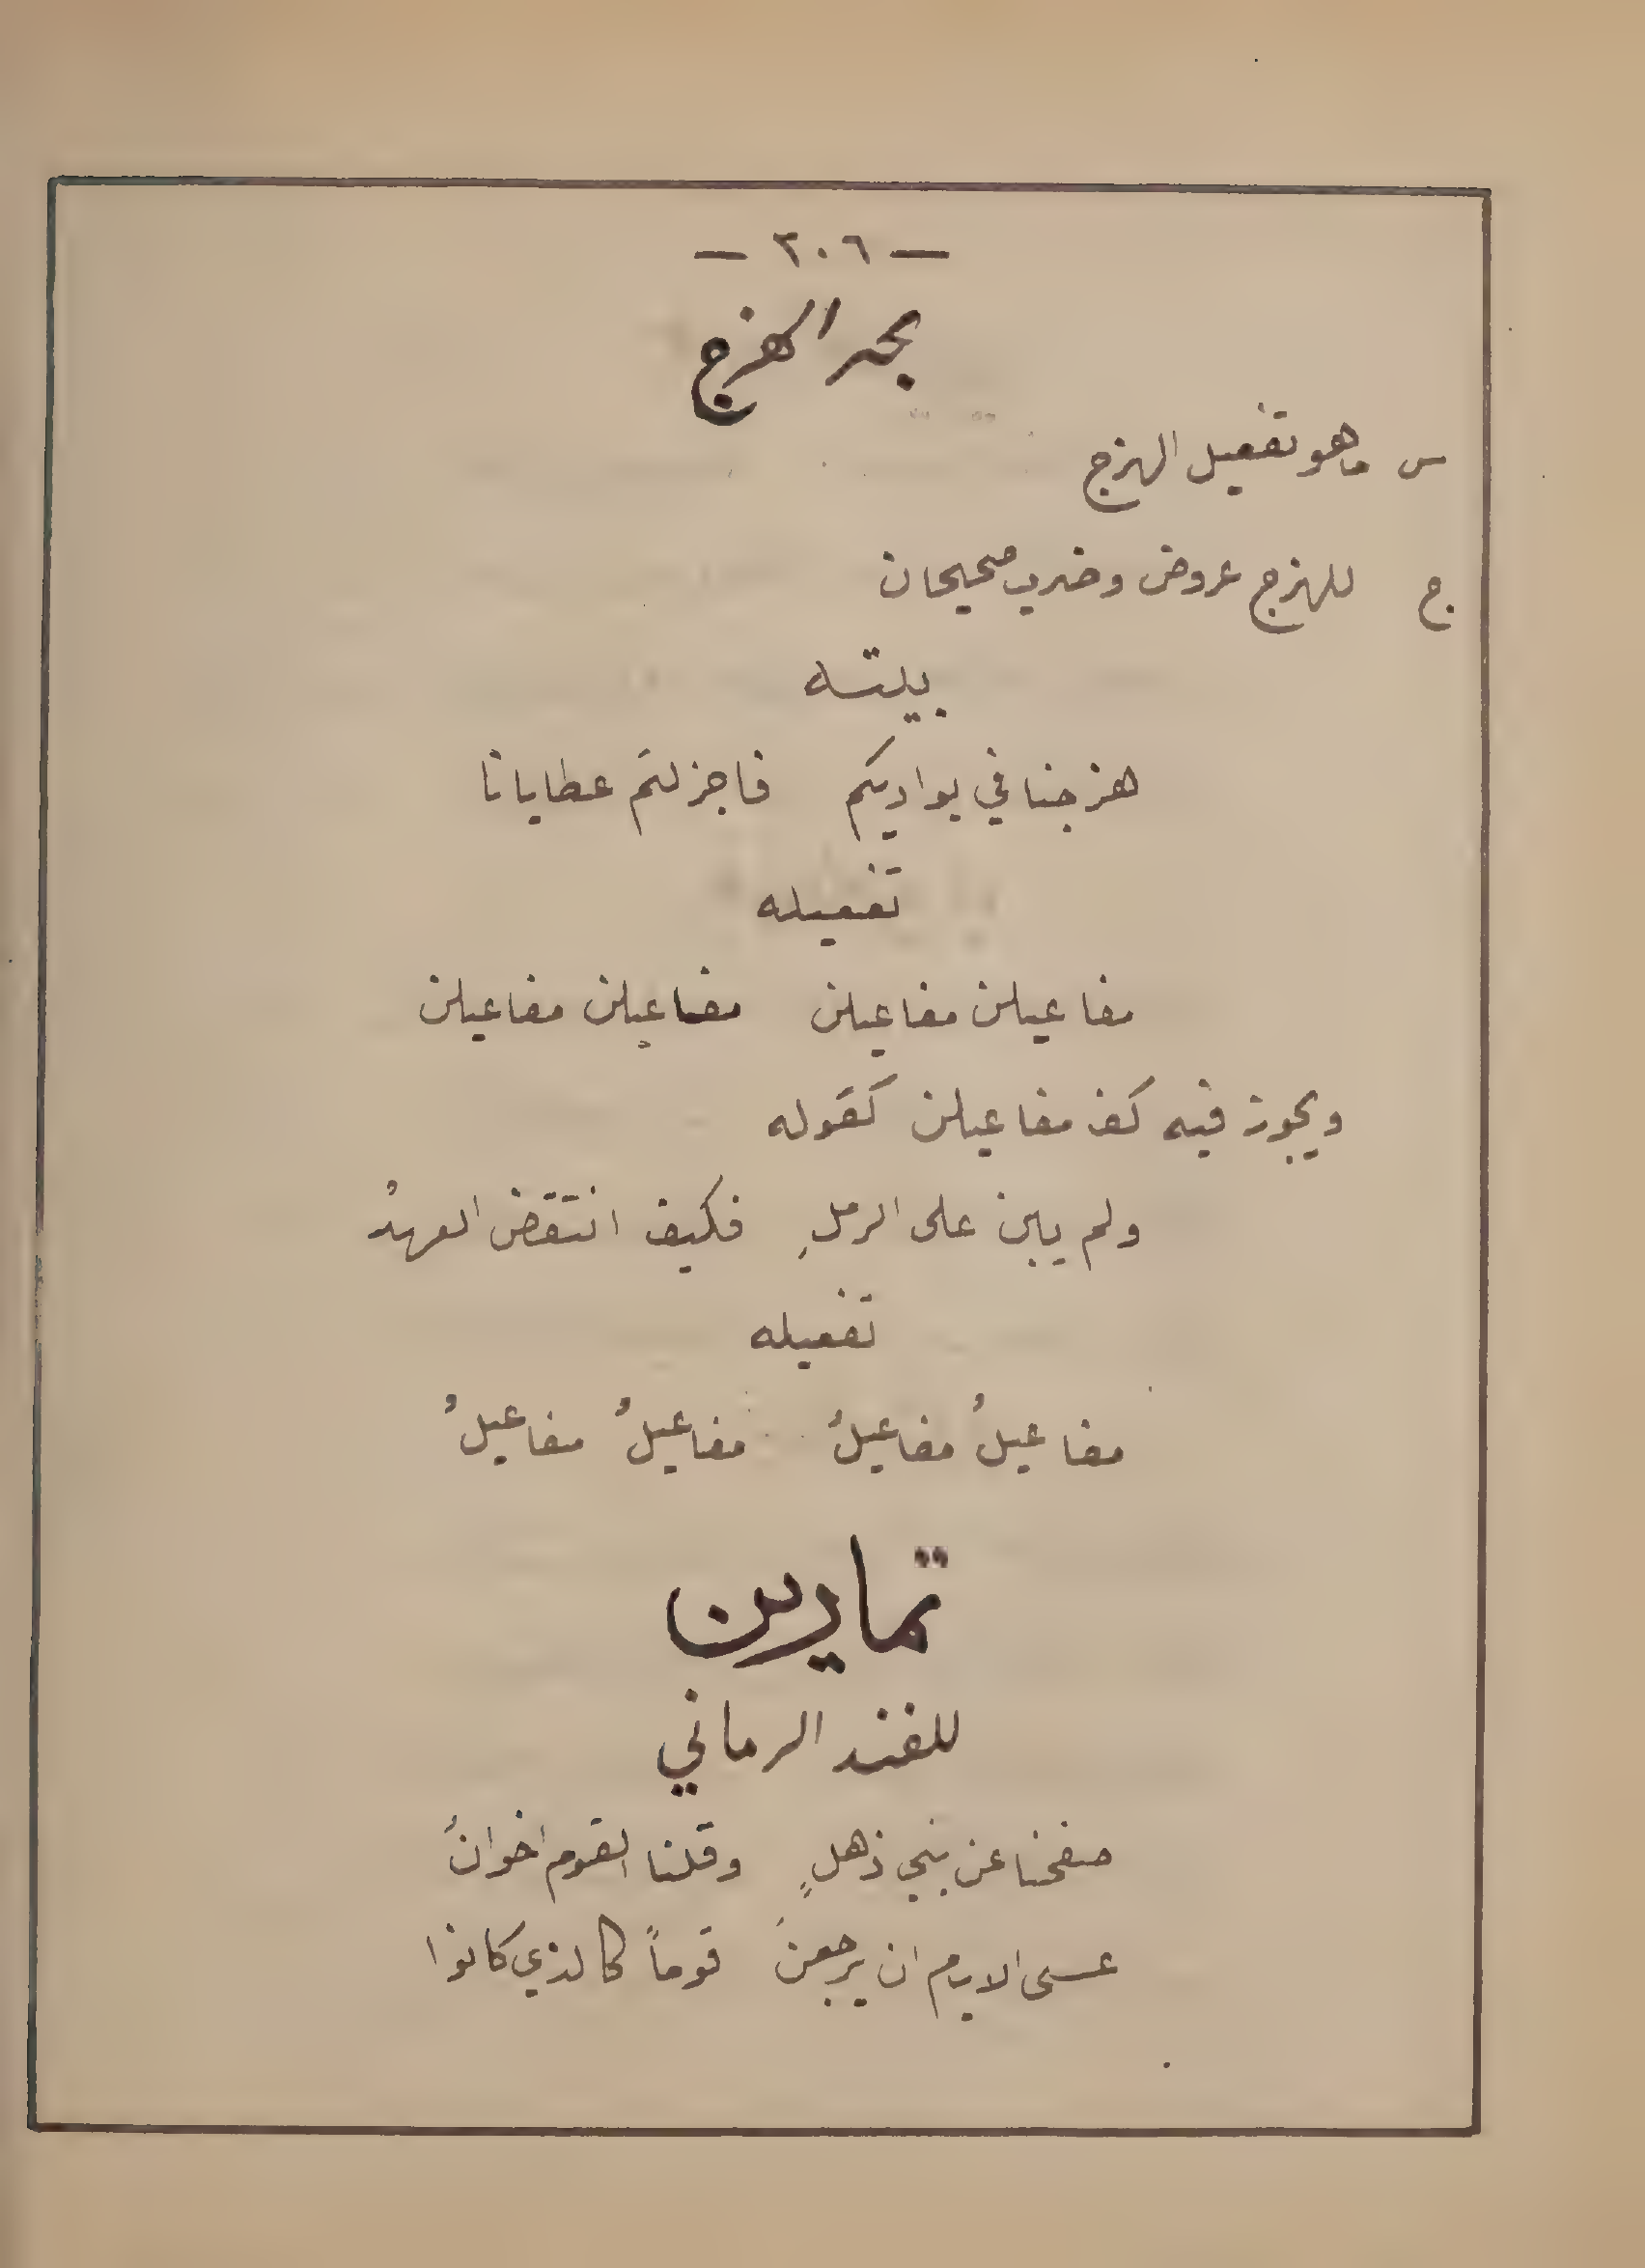 — ٢٠٦ —
بحر الهزج
س ما هو تفعيل الهزج
ج للهزج عروض وضرب صحيحان
بيته
هزجنا في بواديكم فاجزلتم عطايانا
تفعيله
مفاعيلن مفاعيلن مفاعيلن مفاعيلن
ويجوز فيه كف مفاعيلن كقوله
ولم يبن على الرملِ فكيف انتقض العهدُ
تفعيله
مفاعيلُ مفاعيلُ مفاعيلُ مفاعيلُ
تمارين
للفند الرماني
صفحنا عن بني ذهلٍ وقلنا القوم اخوانُ
عسى الايام ان يرجعنَ قوماً كالذي كانوا